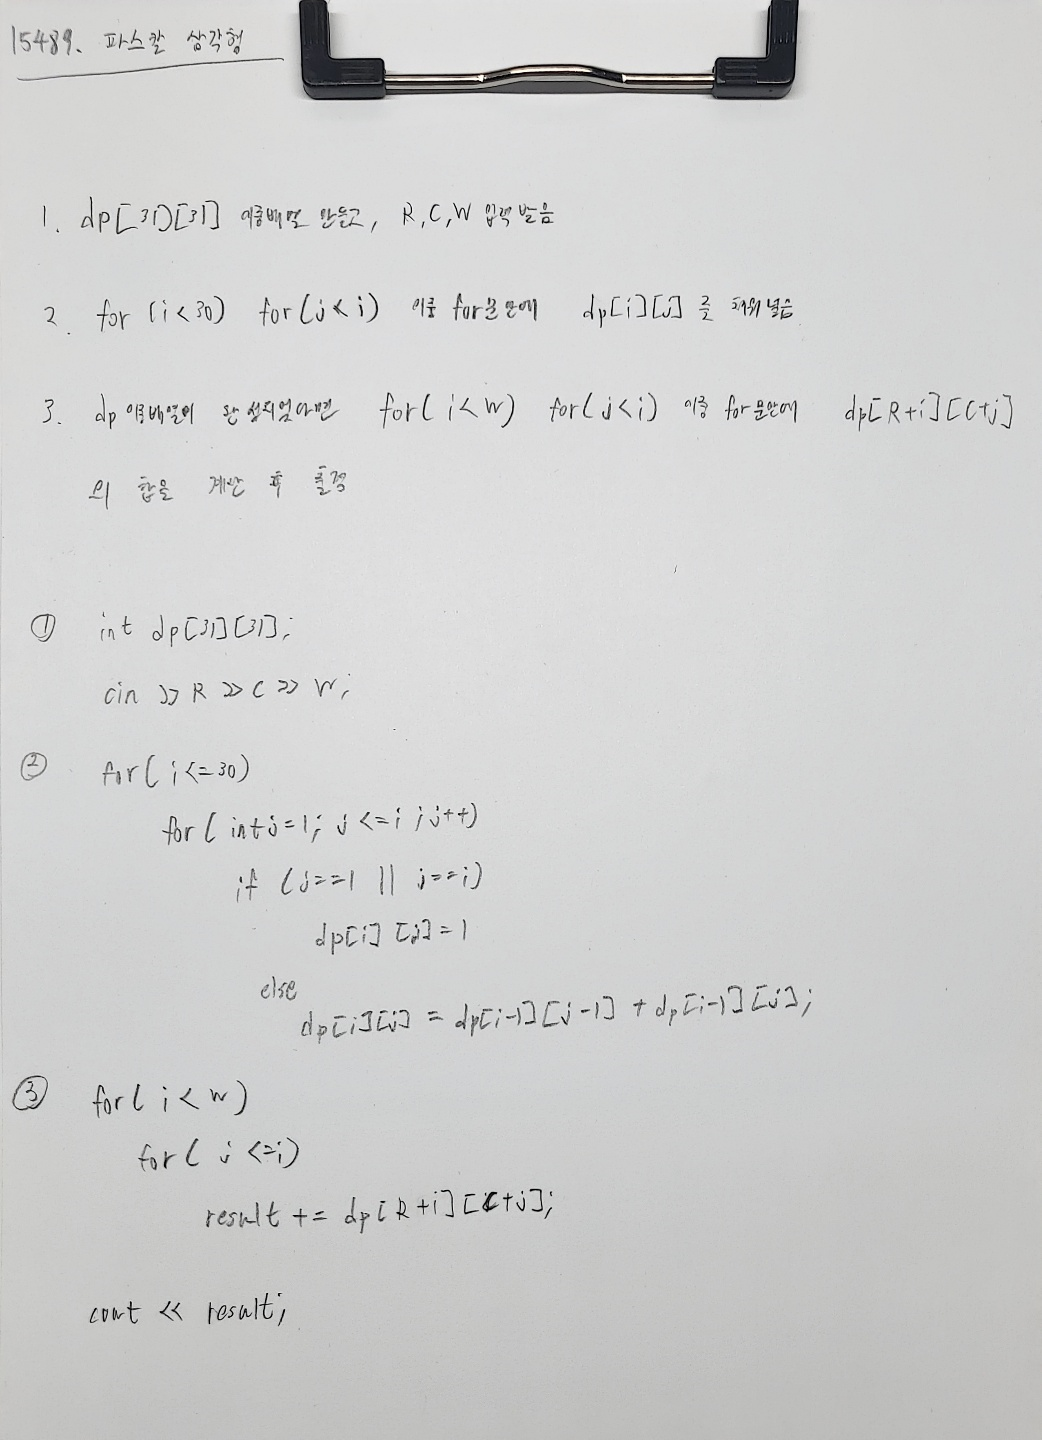 15489. 파스칼 삼각형
1. dp[31][31] 이중배열 만들고, R, C, W 입력 받음
2. for (i < 30) for (j < i) 이중 for문 안에 dp[i][j] 를 채워 넣음
3. dp 이중배열이 완성되었다면 for( i < W) for( j < i) 이중 for문안에 dp[R+i][C+j]
의 합을 계산 후 출력
① int dp[31][31];
cin >> R >> C >> W;
② for( i <= 30)
for( int j=1; j <= i ; j++)
if (j==1 || j==i)
dp[i][j] = 1
else
dp[i][j] = dp[i-1][j-1] + dp[i-1][j];
③ for( i < w)
for( j <= i)
result += dp[R+i][C+j];
cout << result;